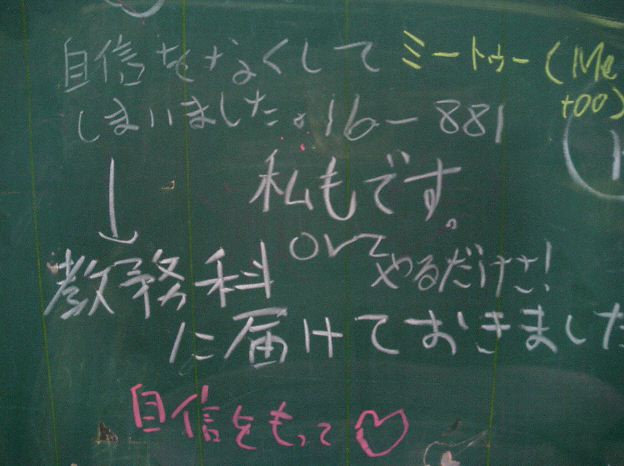 自信をなくして
しまいました。16-881
ミートゥー(Me
too)
↓
私もです。
やるだけさ!
教務科
に届けておきました
自信をもって♡